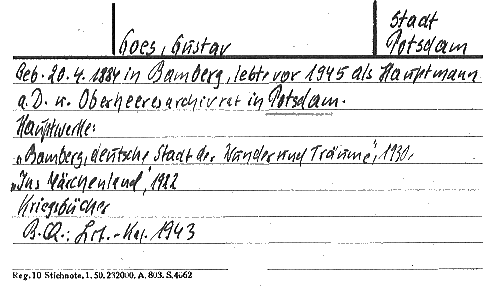 Goes, Gustav
Stadt
Potsdam
Geb. 20.4.1884 in Bamberg, lebte vor 1945 als Hauptmann
a.D. u. Oberheeresarchivrat in Potsdam.
Hauptwerke:
„Bamberg, deutsche Stadt der Wunder und Träume", 1930.
„Ins Märchenland", 1922
Kriegsbücher
B.Q.: Lit.-Kal. 1943
Reg. 10 Stichnote. 1. 50. 232000. A. 803. S. 4662